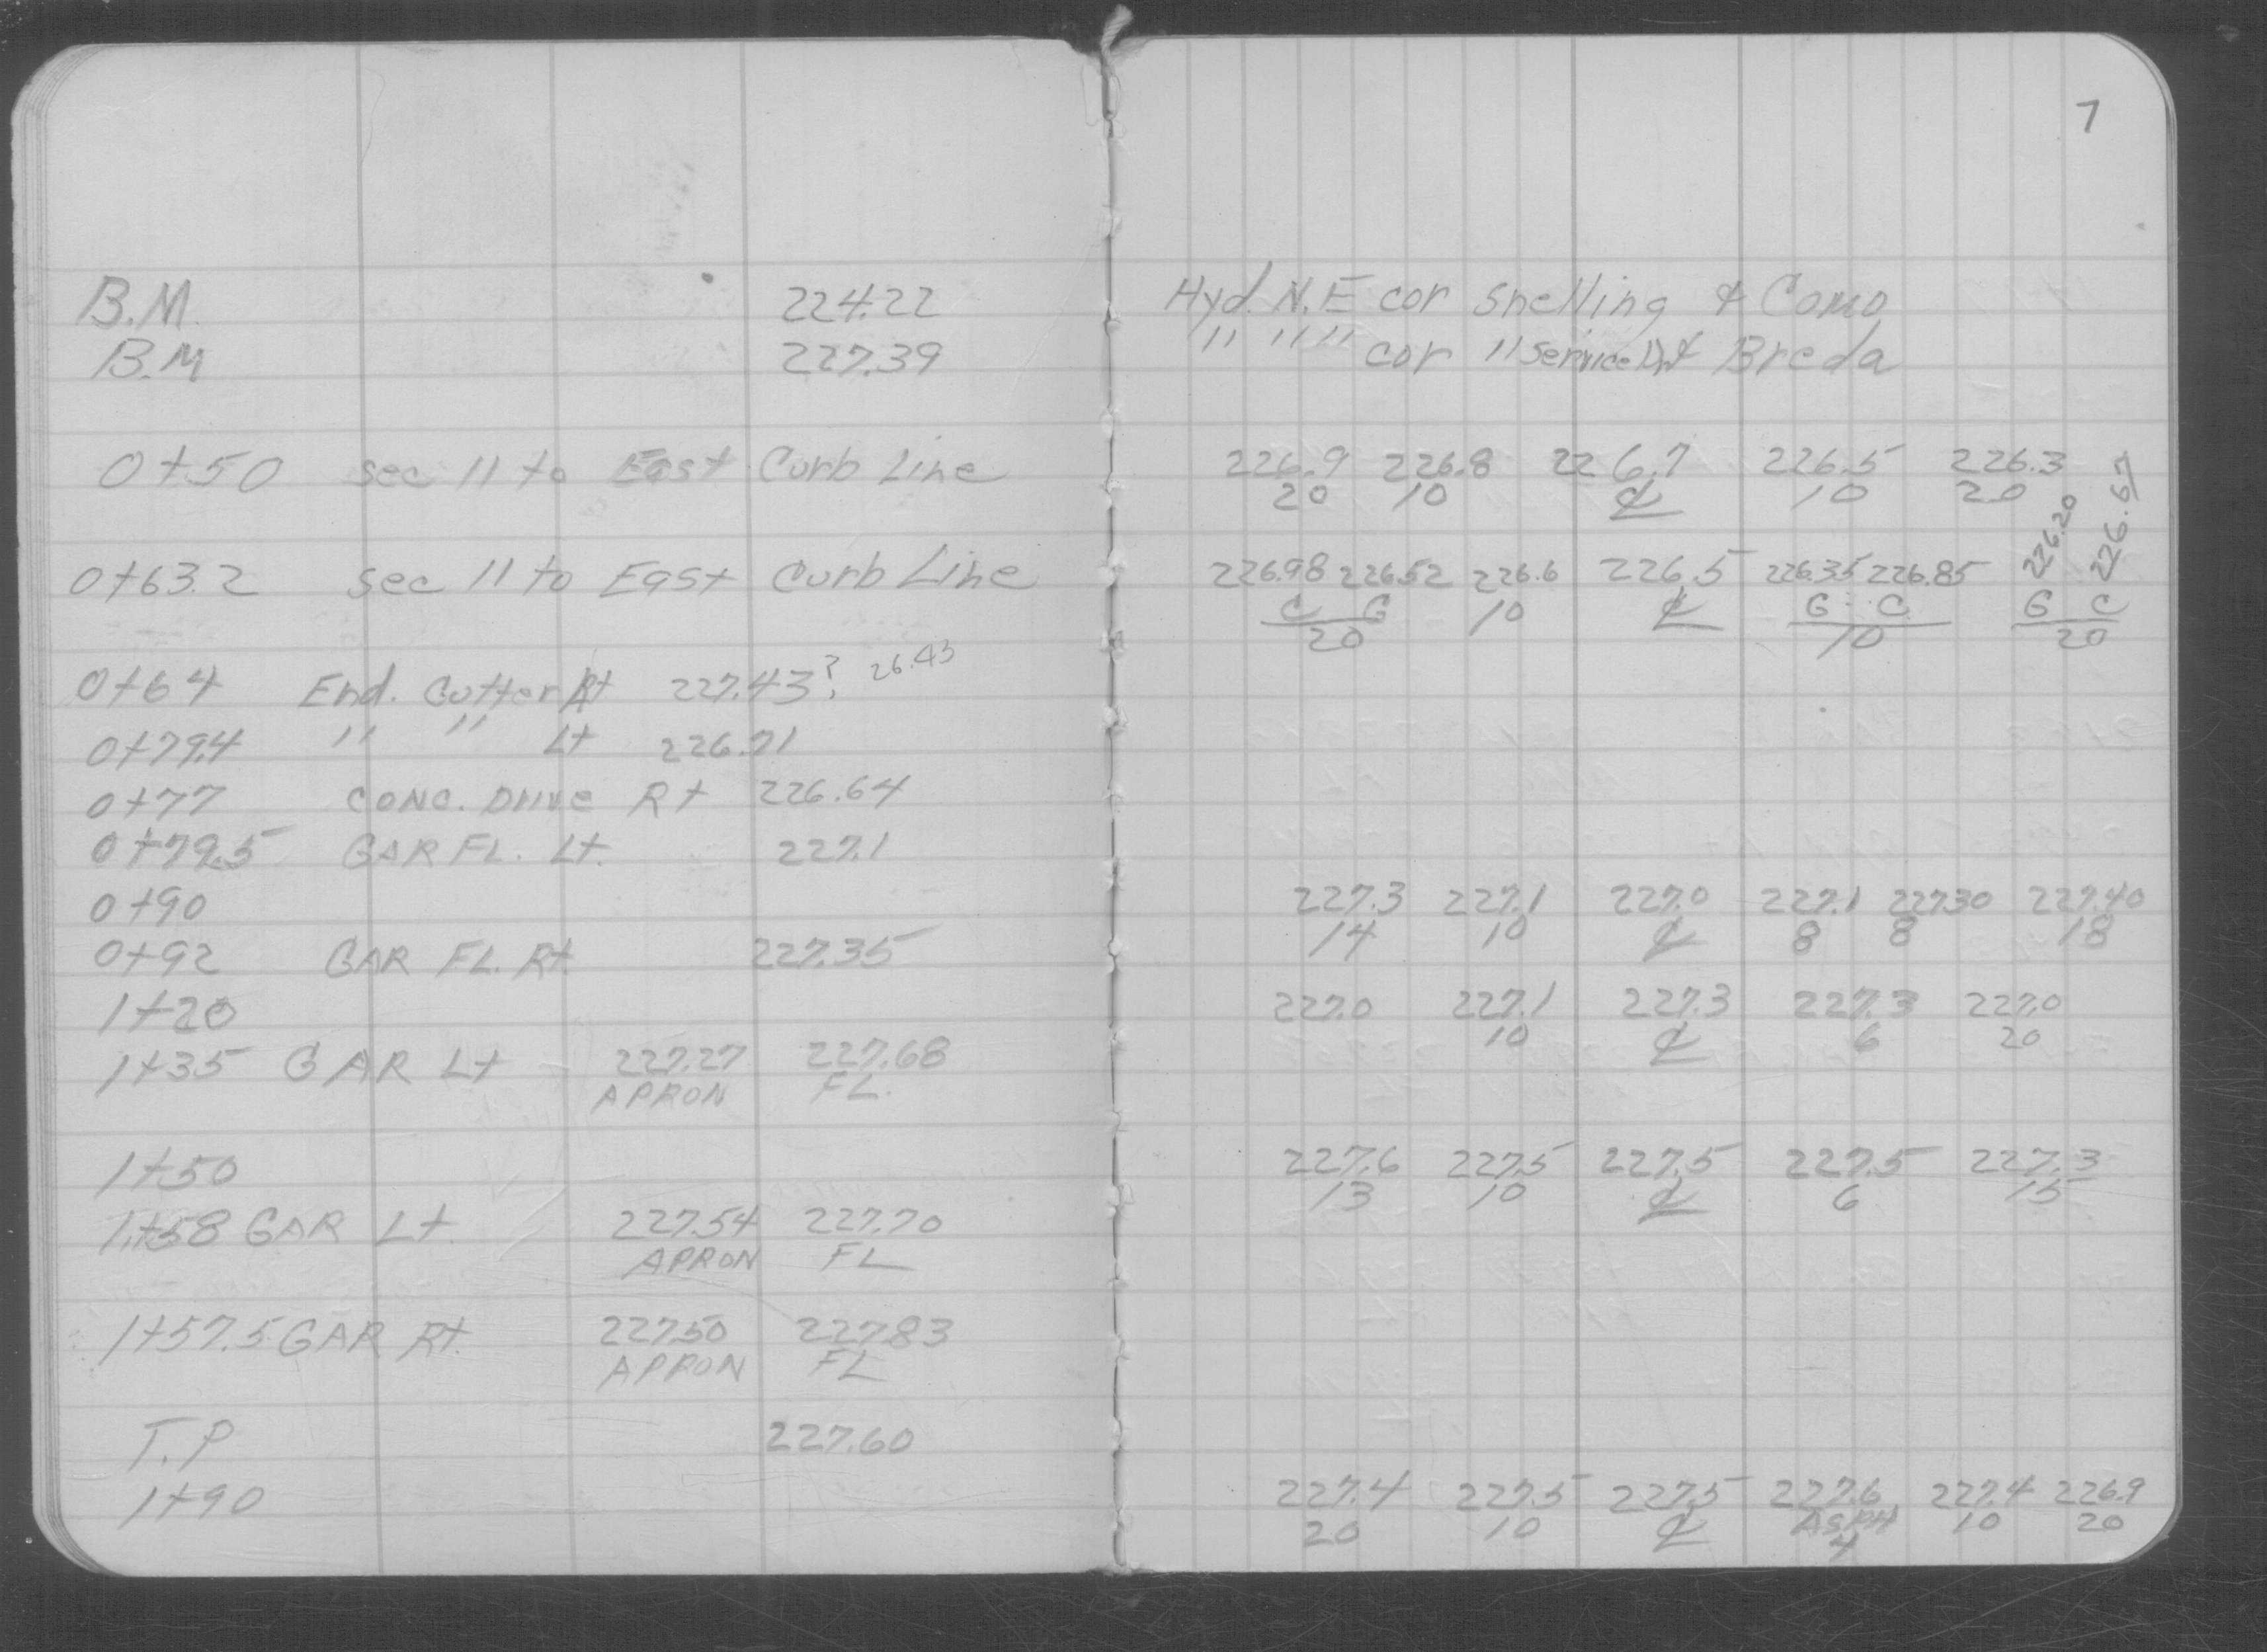 7
B.M. 224.22 Hyd. N.E cor Snelling & Como
B.M 227.39 " " " cor " Service Dr & Breda
0+50 sec 11 to East Curb Line 226.9 226.8 226.7 226.5 226.3
20 10 ℄ 10 20
0+63.2 sec 11 to East Curb Line 226.98 226.52 226.6 226.5 226.35 226.85 226.20 226.67
C G 10 ℄ G C G C
20 10 20
0+64 End. Gutter Rt 227.43? 26.43
0+79.4 " " Lt 226.71
0+77 CONC. Drive Rt 226.64
0+79.5 GAR FL. Lt. 227.1
0+90 227.3 227.1 227.0 227.1 227.30 227.40
14 10 ℄ 8 8 18
0+92 GAR FL. Rt. 227.35
1+20 227.0 227.1 227.3 227.3 227.0
10 ℄ 6 20
1+35 GAR Lt 227.27 227.68
APRON FL.
1+50 227.6 227.5 227.5 227.5 227.3
13 10 ℄ 6 15
1+58 GAR Lt. 227.54 227.70
APRON FL
1+57.5 GAR Rt. 227.50 227.83
APRON FL
T.P 227.60
1+90 227.4 227.5 227.5 227.6 227.4 226.9
20 10 ℄ ASPH 10 20
4